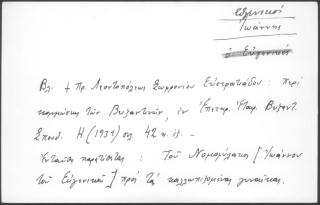 Εὐγενικός
Ἰωάννης
ὁ Εὐγενικός
Βλ. + Πρ. Λεοντοπόλεως Σωφρονίου Εὐστρατιάδου : Περὶ
τῶν Βυζαντινῶν, ἐν Ἐπετηρ. Ἑταιρ. Βυζαντ.
Σπουδ. Η (1931) σελ. 42 κ. ἑξ. -
Ἐνταῦθα : Τοῦ Νομοφύλακος [Ἰωάννου
τοῦ Εὐγενικοῦ] πρὸς τὰ καλλωπιζόμενα γυναῖκας.